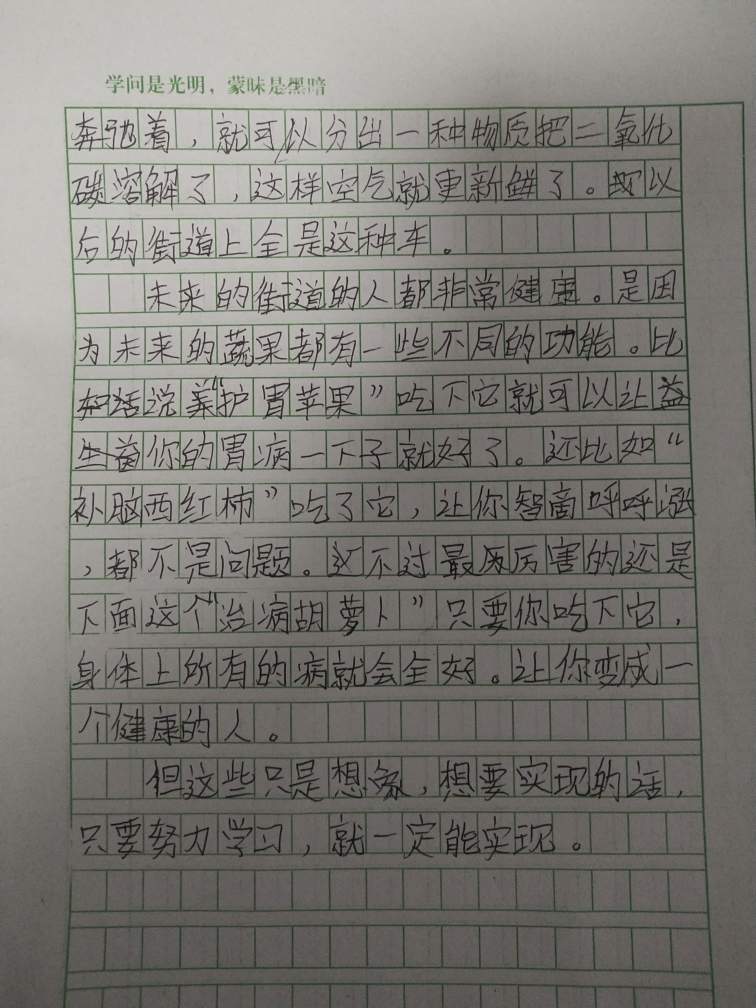 学问是光明，蒙昧是黑暗
奔弛着，就可以分出一种物质把二氧化
碳溶解了，这样空气就更新鲜了。以
后的街道上全是这种车。
未来的街道的人都非常健康。是因
为未来的蔬果都有一些不同的功能。比
如话说“养护胃苹果”吃下它就可以让益
生菌你的胃病一下子就好了。还比如“
补脑西红柿”吃了它，让你智商呼呼涨
，都不是问题。不过最厉害的还是
下面这个“治病胡萝卜”只要你吃下它，
身体上所有的病就会全好。让你变成一
个健康的人。
但这些只是想象，想要实现的话，
只要努力学习，就一定能实现。